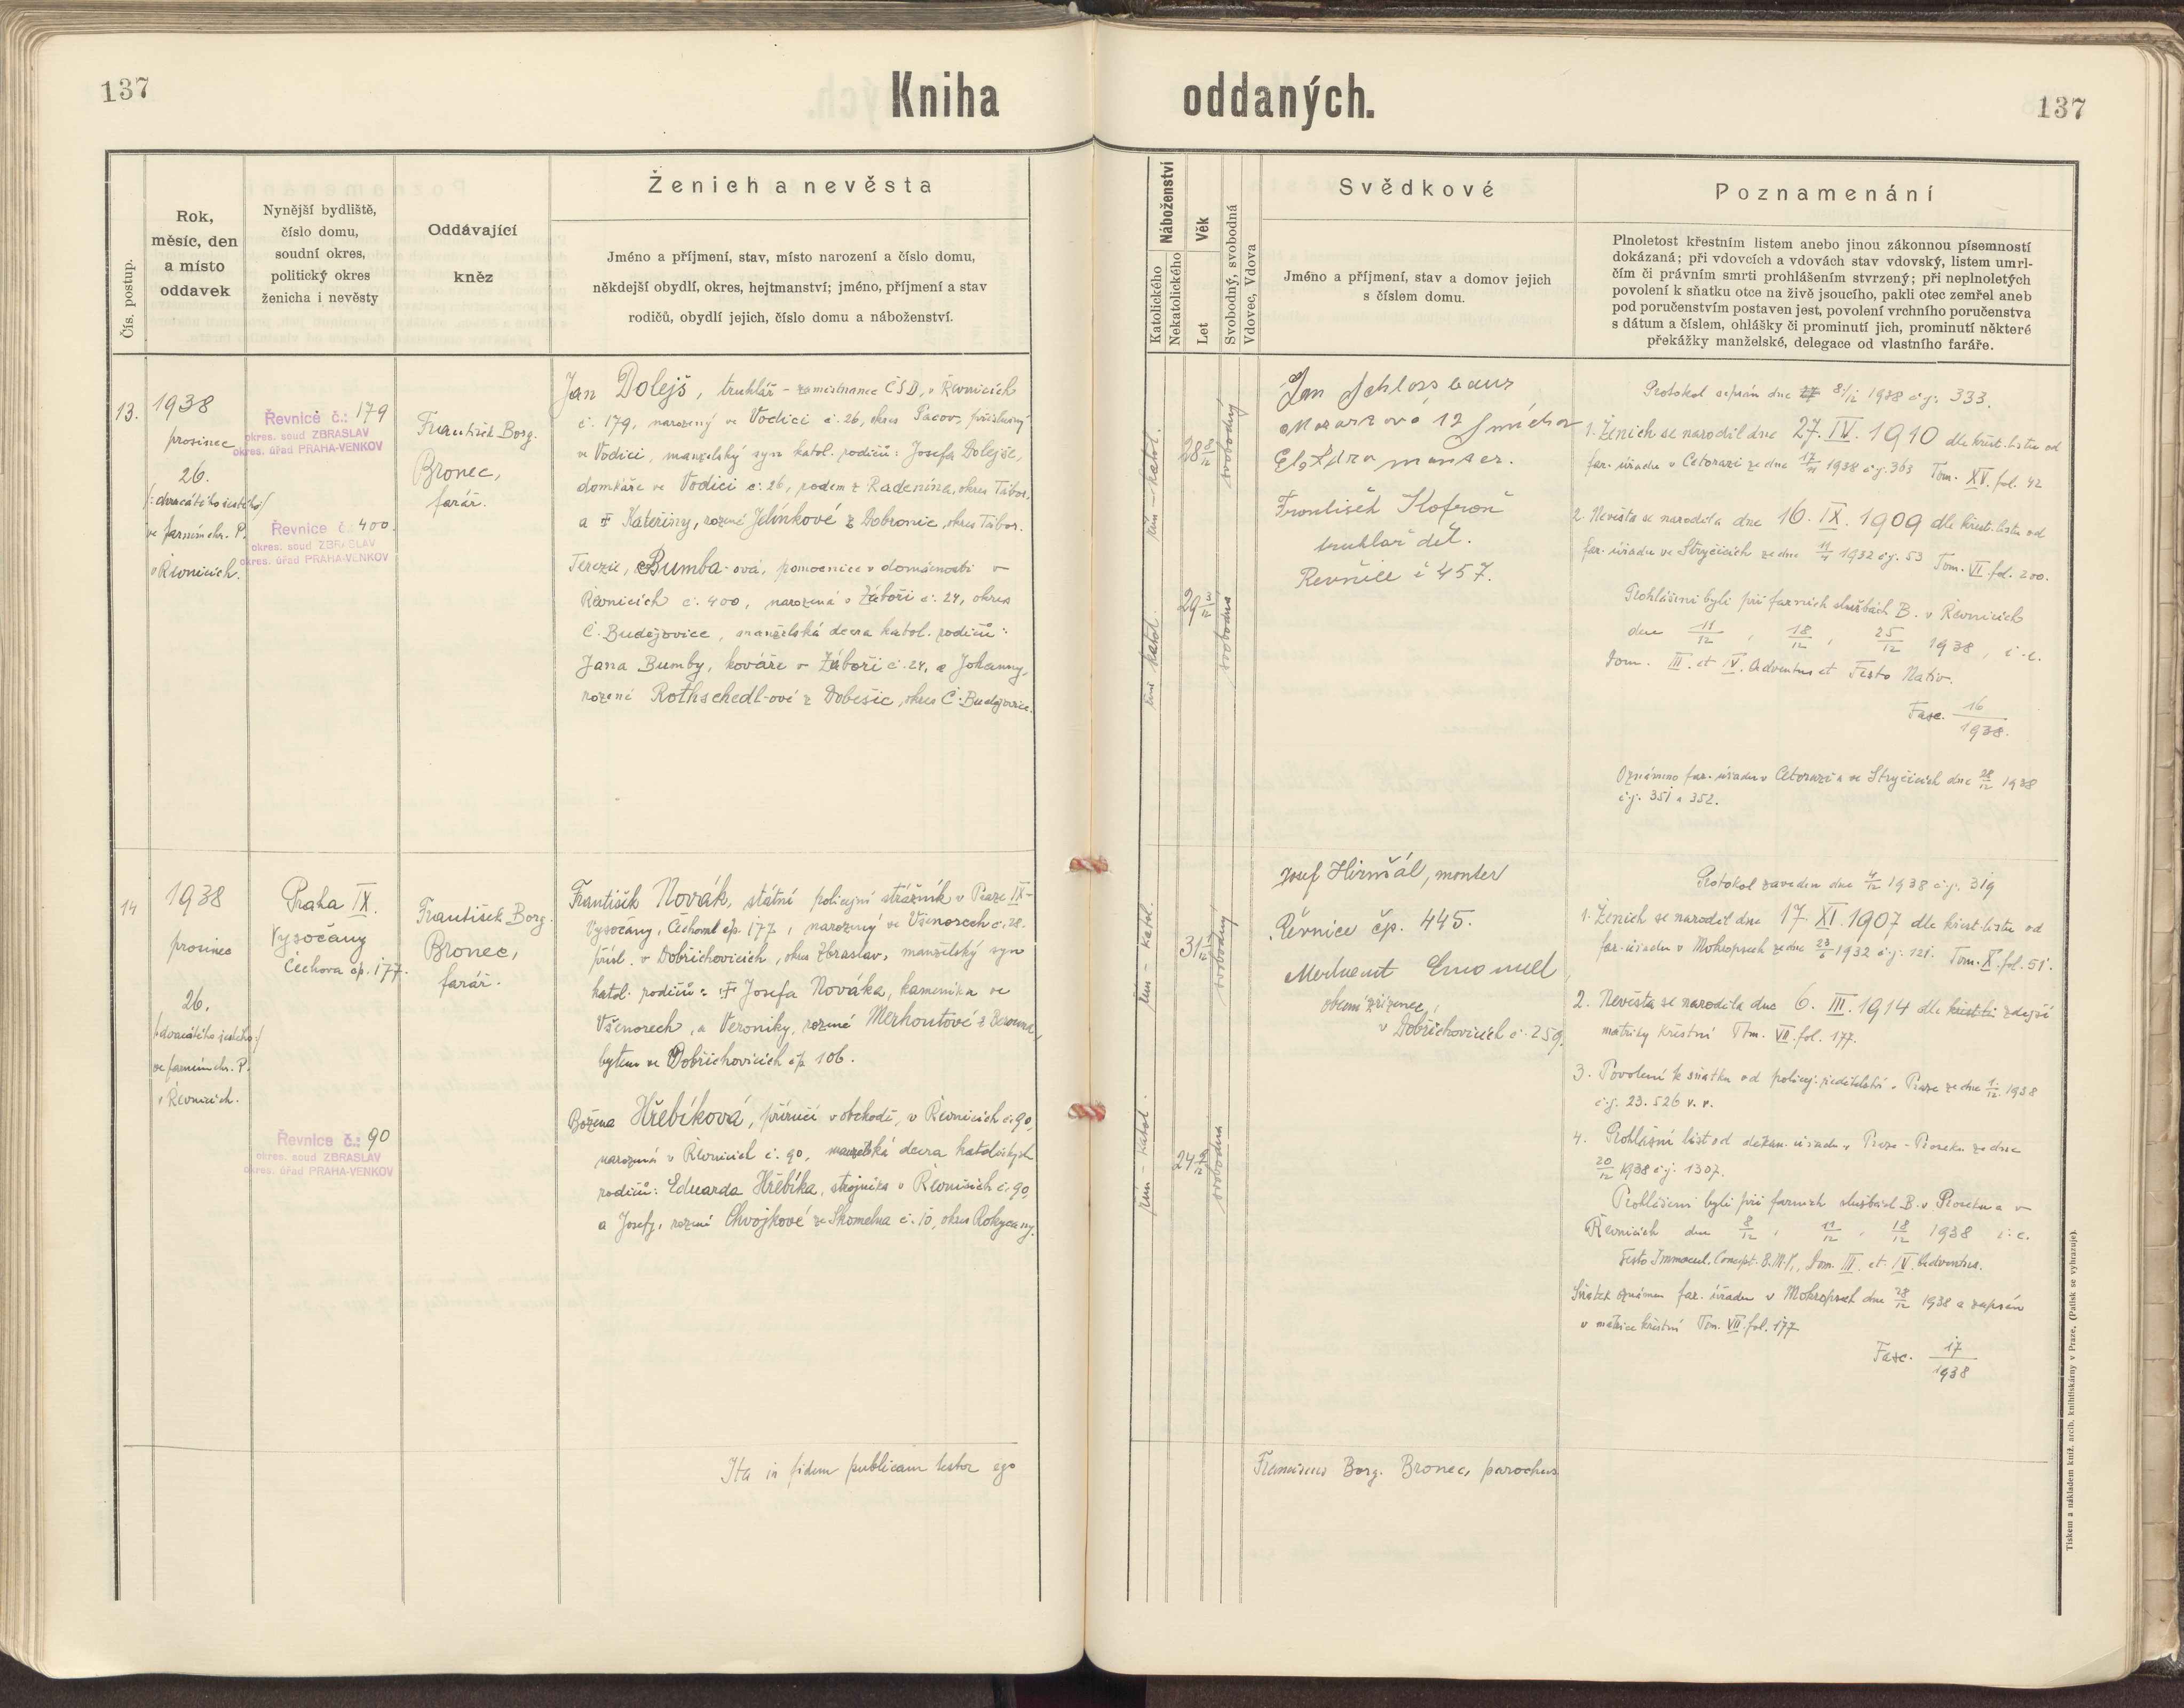 137
Kniha
oddaných.
137
Čís. postup.
Rok,
měsíc, den
a místo
oddavek
Nynější bydliště,
číslo domu,
soudní okres,
politický okres
ženicha i nevěsty
Oddávající
kněz
Ženich a nevěsta
Jméno a příjmení, stav, místo narození a číslo domu,
někdejší obydlí, okres, hejtmanství; jméno, příjmení a stav
rodičů, obydlí jejich, číslo domu a náboženství.
Náboženství
Katolického
Nekatolického
Věk
Let
Svobodný, svobodná
Vdovec, Vdova
Svědkové
Jméno a příjmení, stav a domov jejich
s číslem domu.
Poznamenání
Plnoletost křestním listem anebo jinou zákonnou písemností
dokázaná; při vdovcích a vdovách stav vdovský, listem umrl-
čím či právním smrti prohlášením stvrzený; při neplnoletých
povolení k sňatku otce na živě jsoucího, pakli otec zemřel aneb
pod poručenstvím postaven jest, povolení vrchního poručenstva
s dátum a číslem, ohlášky či prominutí jich, prominutí některé
překážky manželské, delegace od vlastního faráře.
13.
1938
prosinec
26.
/: dvacátého šestého :/
ve farním chr. P.
v Řevnicích.
Řevnice č.: 179
okres. soud ZBRASLAV
okres. úřad PRAHA-VENKOV
Řevnice č.: 400.
okres. soud ZBRASLAV
okres. úřad PRAHA-VENKOV
František Borg.
Bronec,
farář.
Jan Dolejš, truhlář - zaměstnanec ČSD, v Řevnicích
č. 179, narozený ve Vodici č. 26, okres Pacov, příslušný
ve Vodici, manželský syn katol. rodičů: Josefa Dolejše,
domkáře ve Vodici č. 26, rodem z Radenína, okres Tábor,
a † Kateřiny, rozené Jelínkové z Dobronic, okres Tábor.
Terezie, Bumba-ová, pomocnice v domácnosti v
Řevnicích č. 400, narozená v Záboří č. 24, okres
Č. Budějovice, manželská dcera katol. rodičů:
Jana Bumby, kováře v Záboří č. 24, a Johanny,
rozené Rothschedl-ové z Dobešic, okres Č. Budějovice.
řím - katol.
28 8/12
svobodný
řím katol.
29 3/12
svobodná
Jan Schlossbauer
Mozartova 12 Smíchov
František Kofroň
truhlář děl.
Řevnice č 457.
Protokol sepsán dne 8./12 1938 č.j. 333.
1. Ženich se narodil dne 27. IV. 1910 dle křest. listu od
far. úřadu v Cetorazi ze dne 17/11 1938 č.j. 363 Tom. XV. fol. 42
2. Nevěsta se narodila dne 16. IX. 1909 dle křest. listu od
far. úřadu ve Strýčicích ze dne 11/4 1932 č.j. 53 Tom. VI. fol. 200.
Prohlášeni byli při farních službách B. v Řevnicích
dne 11/12, 18/12, 25/12 1938, i.e.
Dom. III. et IV. Adventus et Festo Nativ.
Fasc. 16/1938.
Oznámeno far. úřadu v Cetorazi a ve Strýčicích dne 28/12 1938
č.j. 351 a 352.
14
1938
prosinec
26.
/: dvacátého šestého :/
ve farním chr. P.
v Řevnicích.
Praha IX.
Vysočany
Čechova čp. 177.
Řevnice č.: 90
okres. soud ZBRASLAV
okres. úřad PRAHA-VENKOV
František Borg.
Bronec,
farář.
František Novák, státní policejní strážník v Praze IX-
Vysočany, Čechova čp. 177, narozený ve Všenorech č. 28.
přísl. v Dobřichovicích, okres Zbraslav, manželský syn
katol. rodičů: † Josefa Nováka, kameníka ve
Všenorech, a Veroniky, rozené Merhoutové z Berouna,
bytem ve Dobřichovicích čp. 106.
Božena Hřebíková, příručí v obchodě, v Řevnicích č. 90,
narozená v Řevnicích č. 90, manželská dcera katolických
rodičů: Eduarda Hřebíka, strojníka v Řevnicích č. 90,
a Josefy, rozené Chvojkové ze Skomelna č. 10, okres Rokycany.
řím - katol.
31
svobodný
řím - katol.
24
svobodná
Josef Hirmšál, monter
Řevnice čp. 445.
Emanuel
obecní zřízenec,
v Dobřichovicích č. 259.
Protokol zaveden dne 4/12 1938 č.j. 319
1. Ženich se narodil dne 17. XI. 1907 dle křest. listu od
far. úřadu v Mokropsech ze dne 23/6 1932 č.j. 121. Tom. X. fol. 51.
2. Nevěsta se narodila dne 6. III. 1914 dle zdejší
matriky křestní Tom. VII. fol. 177.
3. Povolení k sňatku od policej. ředitelství v Praze ze dne 1./12. 1938
č.j. 23.526 v. v.
4. Prohlášní list od děkan. úřadu v Praze - Proseku ze dne
20/12 1938 č.j. 1307.
Prohlášeni byli při farních službách B. v Proseku a v
Řevnicích dne 8/12, 11/12, 18/12 1938 i.e.
Festo Immacul. Concept. B.M.V., Dom. III. et IV. Adventus.
Sňatek oznámen far. úřadu v Mokropsech dne 28/12 1938 a zapsán
v matrice křestní Tom. VII. fol. 177.
Fasc. 17/1938
Ita in fidem publicam testor ego
Franciscus Borg. Bronec, parochus
Tiskem a nákladem kníž. arcib. knihtiskárny v Praze. (Patisk se vyhrazuje).